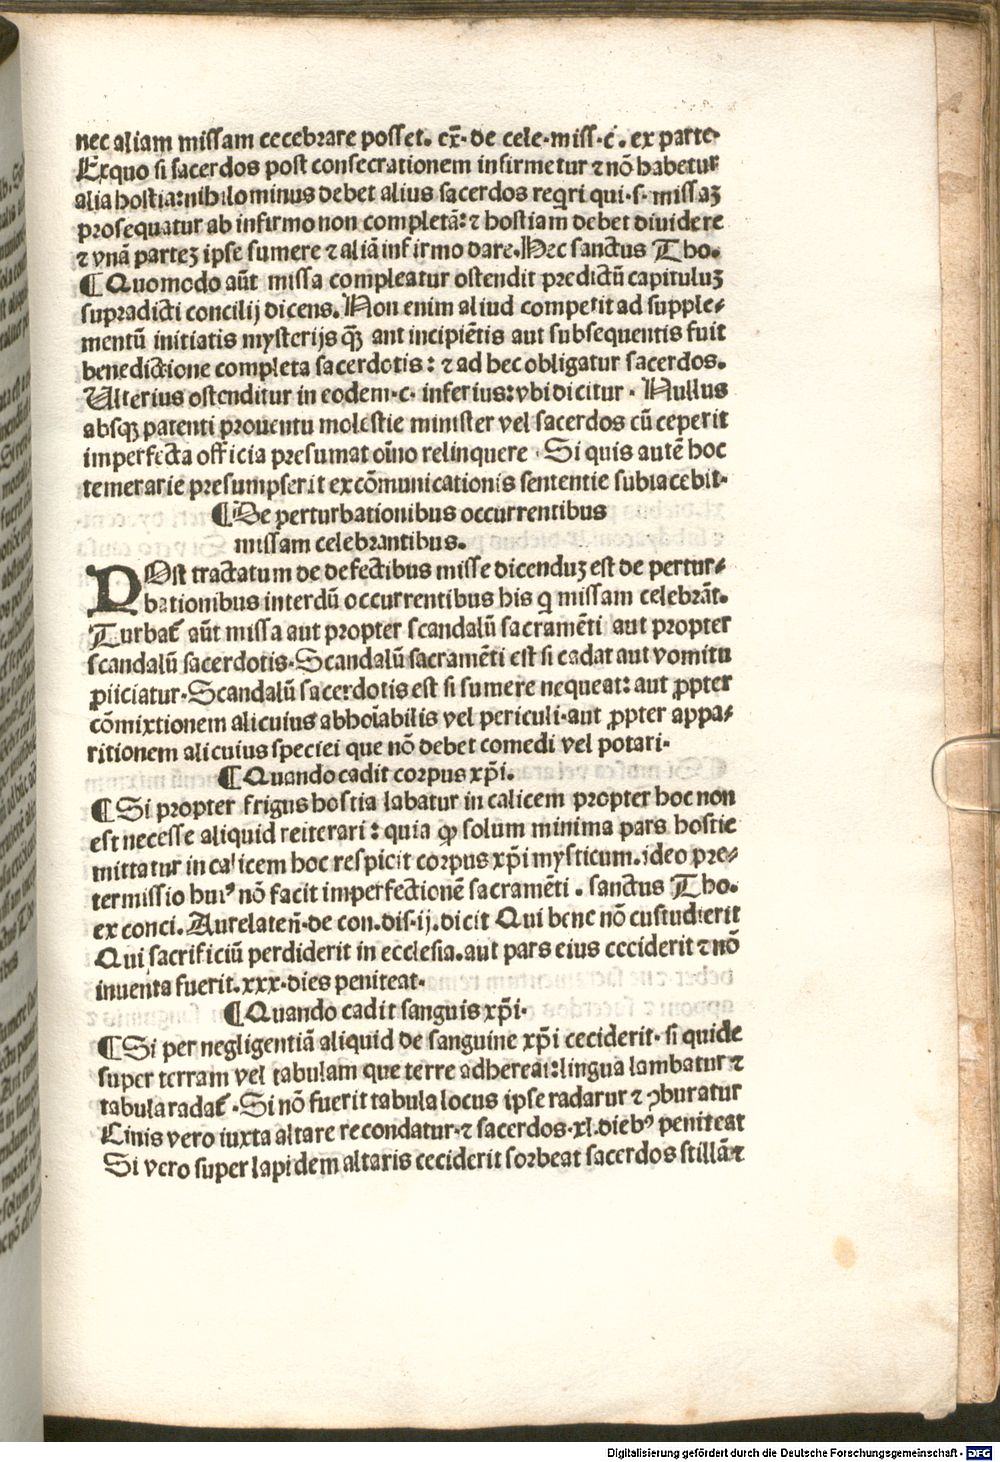 nec aliam missam cecebrare posset. ex̄· de cele·miss·c̄. ex parte
Exquo si sacerdos post consecrationem infirmetur ⁊ nō habetur
alia hostia:nihilominus debet alius sacerdos reqri qui·s·missaꝫ
prosequatur ab infirmo non completā:⁊ hostiam debet diuidere
⁊ vnā parteꝫ ipse sumere ⁊ aliā infirmo dare.Hec sanctus Tho.
¶Quomodo aūt missa compleatur ostendit predictū capituluꝫ
supradicti concilij dicens.Non enim aliud competit ad supple⸗
mentū initiatis mysterijs qꝫ̄ ant incipiētis aut subsequentis fuit
benedictione completa sacerdotis: ⁊ ad hec obligatur sacerdos.
Ulterius ostenditur in eodem·c· inferius:vbi dicitur · Nullus
absqꝫ patenti prouentu molestie minister vel sacerdos cū ceperit
imperfecta officia presumat oīno relinquere · Si quis autē hoc
temerarie presumpserit excōmunicationis sententie subiacebit·
¶De perturbationibus occurrentibus
missam celebrantibus.
POst tractatum de defectibus misse dicenduꝫ est de pertur⸗
bationibus interdū occurrentibus his q missam celebrāt.
Turbat᷑ aūt missa aut propter scandalū sacramēti aut propter
scandalū sacerdotis·Scandalū sacramēti est si cadat aut vomitu
ꝓiiciatur·Scandalū sacerdotis est si sumere nequeat: aut ꝓpter
cōmixtionem alicuius abhoīabilis vel periculi·aut ꝓpter appa⸗
ritionem alicuius speciei que nō debet comedi vel potari·
¶Quando cadit corpus xp̄i.
¶Si propter frigus hostia labatur in calicem propter hoc non
est necesse aliquid reiterari: quia ꝙ solum minima pars hostie
mittatur in calicem hoc respicit corpus xp̄i mysticum.ideo pre⸗
termissio huiꝰ nō facit imperfectionē sacramēti . sanctus Tho.
ex conci. Aurelateñ·de con.dis·ij.dicit Qui bene nō custudierit
Qui sacrificiū perdiderit in ecclesia.aut pars eius ceciderit ⁊ nō
inuenta fuerit.xxx·dies peniteat·
¶Quando cadit sanguis xp̄i·
¶Si per negligentiā aliquid de sanguine xp̄i ceciderit· si quide
super terram vel tabulam que terre adhereat:lingua lambatur ⁊
tabula radat᷑ ·Si nō fuerit tabula locus ipse radatur ⁊ ꝯburatur
Cinis vero iuxta altare recondatur·⁊ sacerdos·xl.diebꝰ peniteat
Si vero super lapidem altaris ceciderit sorbeat sacerdos stillā ⁊
Digitalisierung gefördert durch die Deutsche Forschungsgemeinschaft - DFG